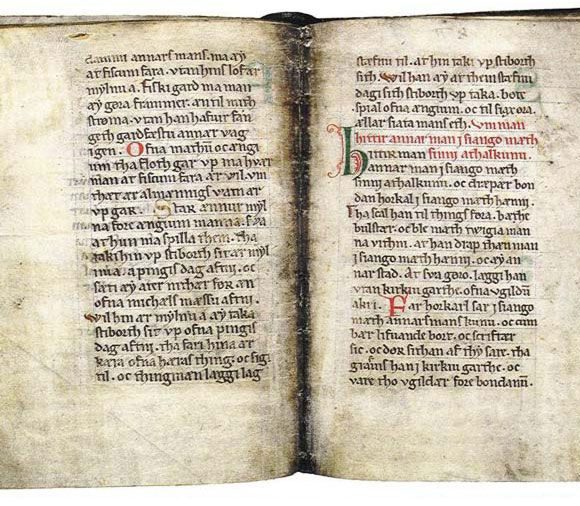 damm annars mans. ma æy
at fiscum fara. vtan hans lof ær
mylnu a. Fiski gard ma man
æy gøra frammer. æn til mith
strøma. vtan han hafuir fan
geth gardfæstu annær væg
igen. Ofna mathū oc æng
ium tha floth gar vp ma hvar
man at fiscum fara ær vil. vm
thæt ær almænnings vatn ær
vp gar. Stær ænnur myl
na fore ængium man a a.
ær hun ma spilla them. tha
taki hin vp stiborth sit ær myl
nu a. a pingis dag afni. oc
sæti æy atær nithær for æn
ofna michæls mæssu afni.
Wil hin ær mylnu a æy taka
stiborth sit vp ofna pingis
dag afni. tha fari hina ær
kæra ofna hæras thing. oc sigi
til. oc thingmæn læggi lag
stæfnu til. at hin taki vp stiborth
sith. Wil han æy at them stæfnu
dagi sith stiborth vp taka. bøte
spial ofna ængium. oc til
ællær sæta mans eth. Vm man
hittir annar man i siango mæth
Hittir man sinni athalkunu.
annar man i siango mæth
sinni athalkunu. oc dræpær ban
dan horkal i siango mæth hænni.
tha scal han til things føra. bathe
bulstær. oc ble mæth twigia man
na vitni. at han drap thæn man
i siango mæth hænni. oc æy an
nar stad. ær sva gøro. læggi han
vtan kirkiu garthe. ofna vgildū
akri. Far horkarl sar i siango
mæth annars mans kunu. oc cum
bær lifuande bort. oc scriftær
sic. oc dør sithan af thy sare. tha
giæfs han i kirkiu garthe. oc
væræ tho vgildær fore bondanū.